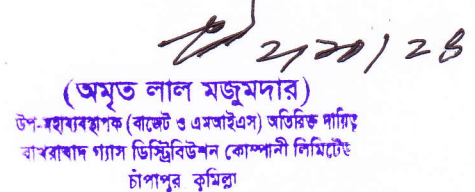 2/10/24
(অমৃত লাল মজুমদার)
উপ-মহাব্যবস্থাপক (বাজেট ও এমআইএস) অতিরিক্ত দায়িত্ব
বাখরাবাদ গ্যাস ডিস্ট্রিবিউশন কোম্পানী লিমিটেড
চাঁপাপুর কুমিল্লা